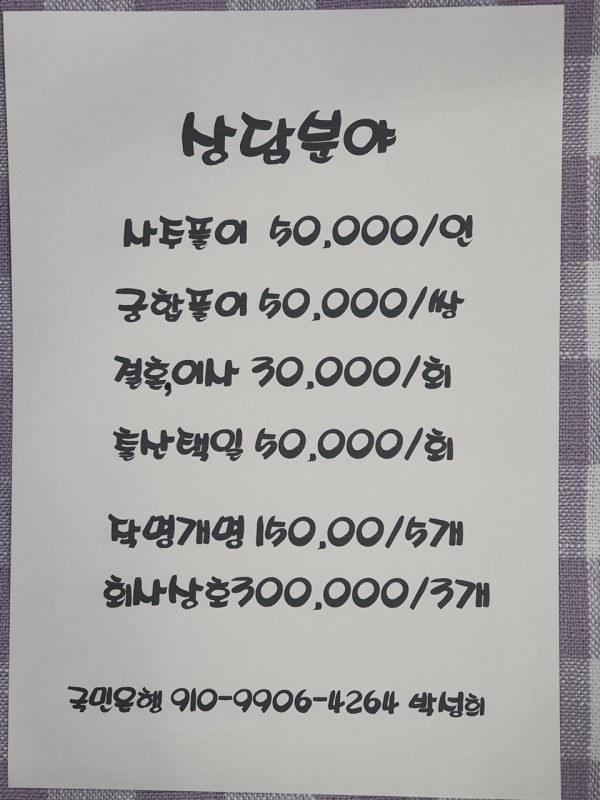 상담분야
사주풀이 50,000/인
궁합풀이 50,000/쌍
결혼,이사 30,000/회
출산택일 50,000/회
작명개명 150,00/5개
회사상호300,000/3개
국민은행 910-9906-4264 박성희